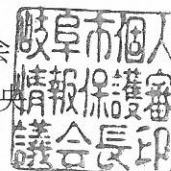 会
央
岐阜市個人
情報保護審
議会長印